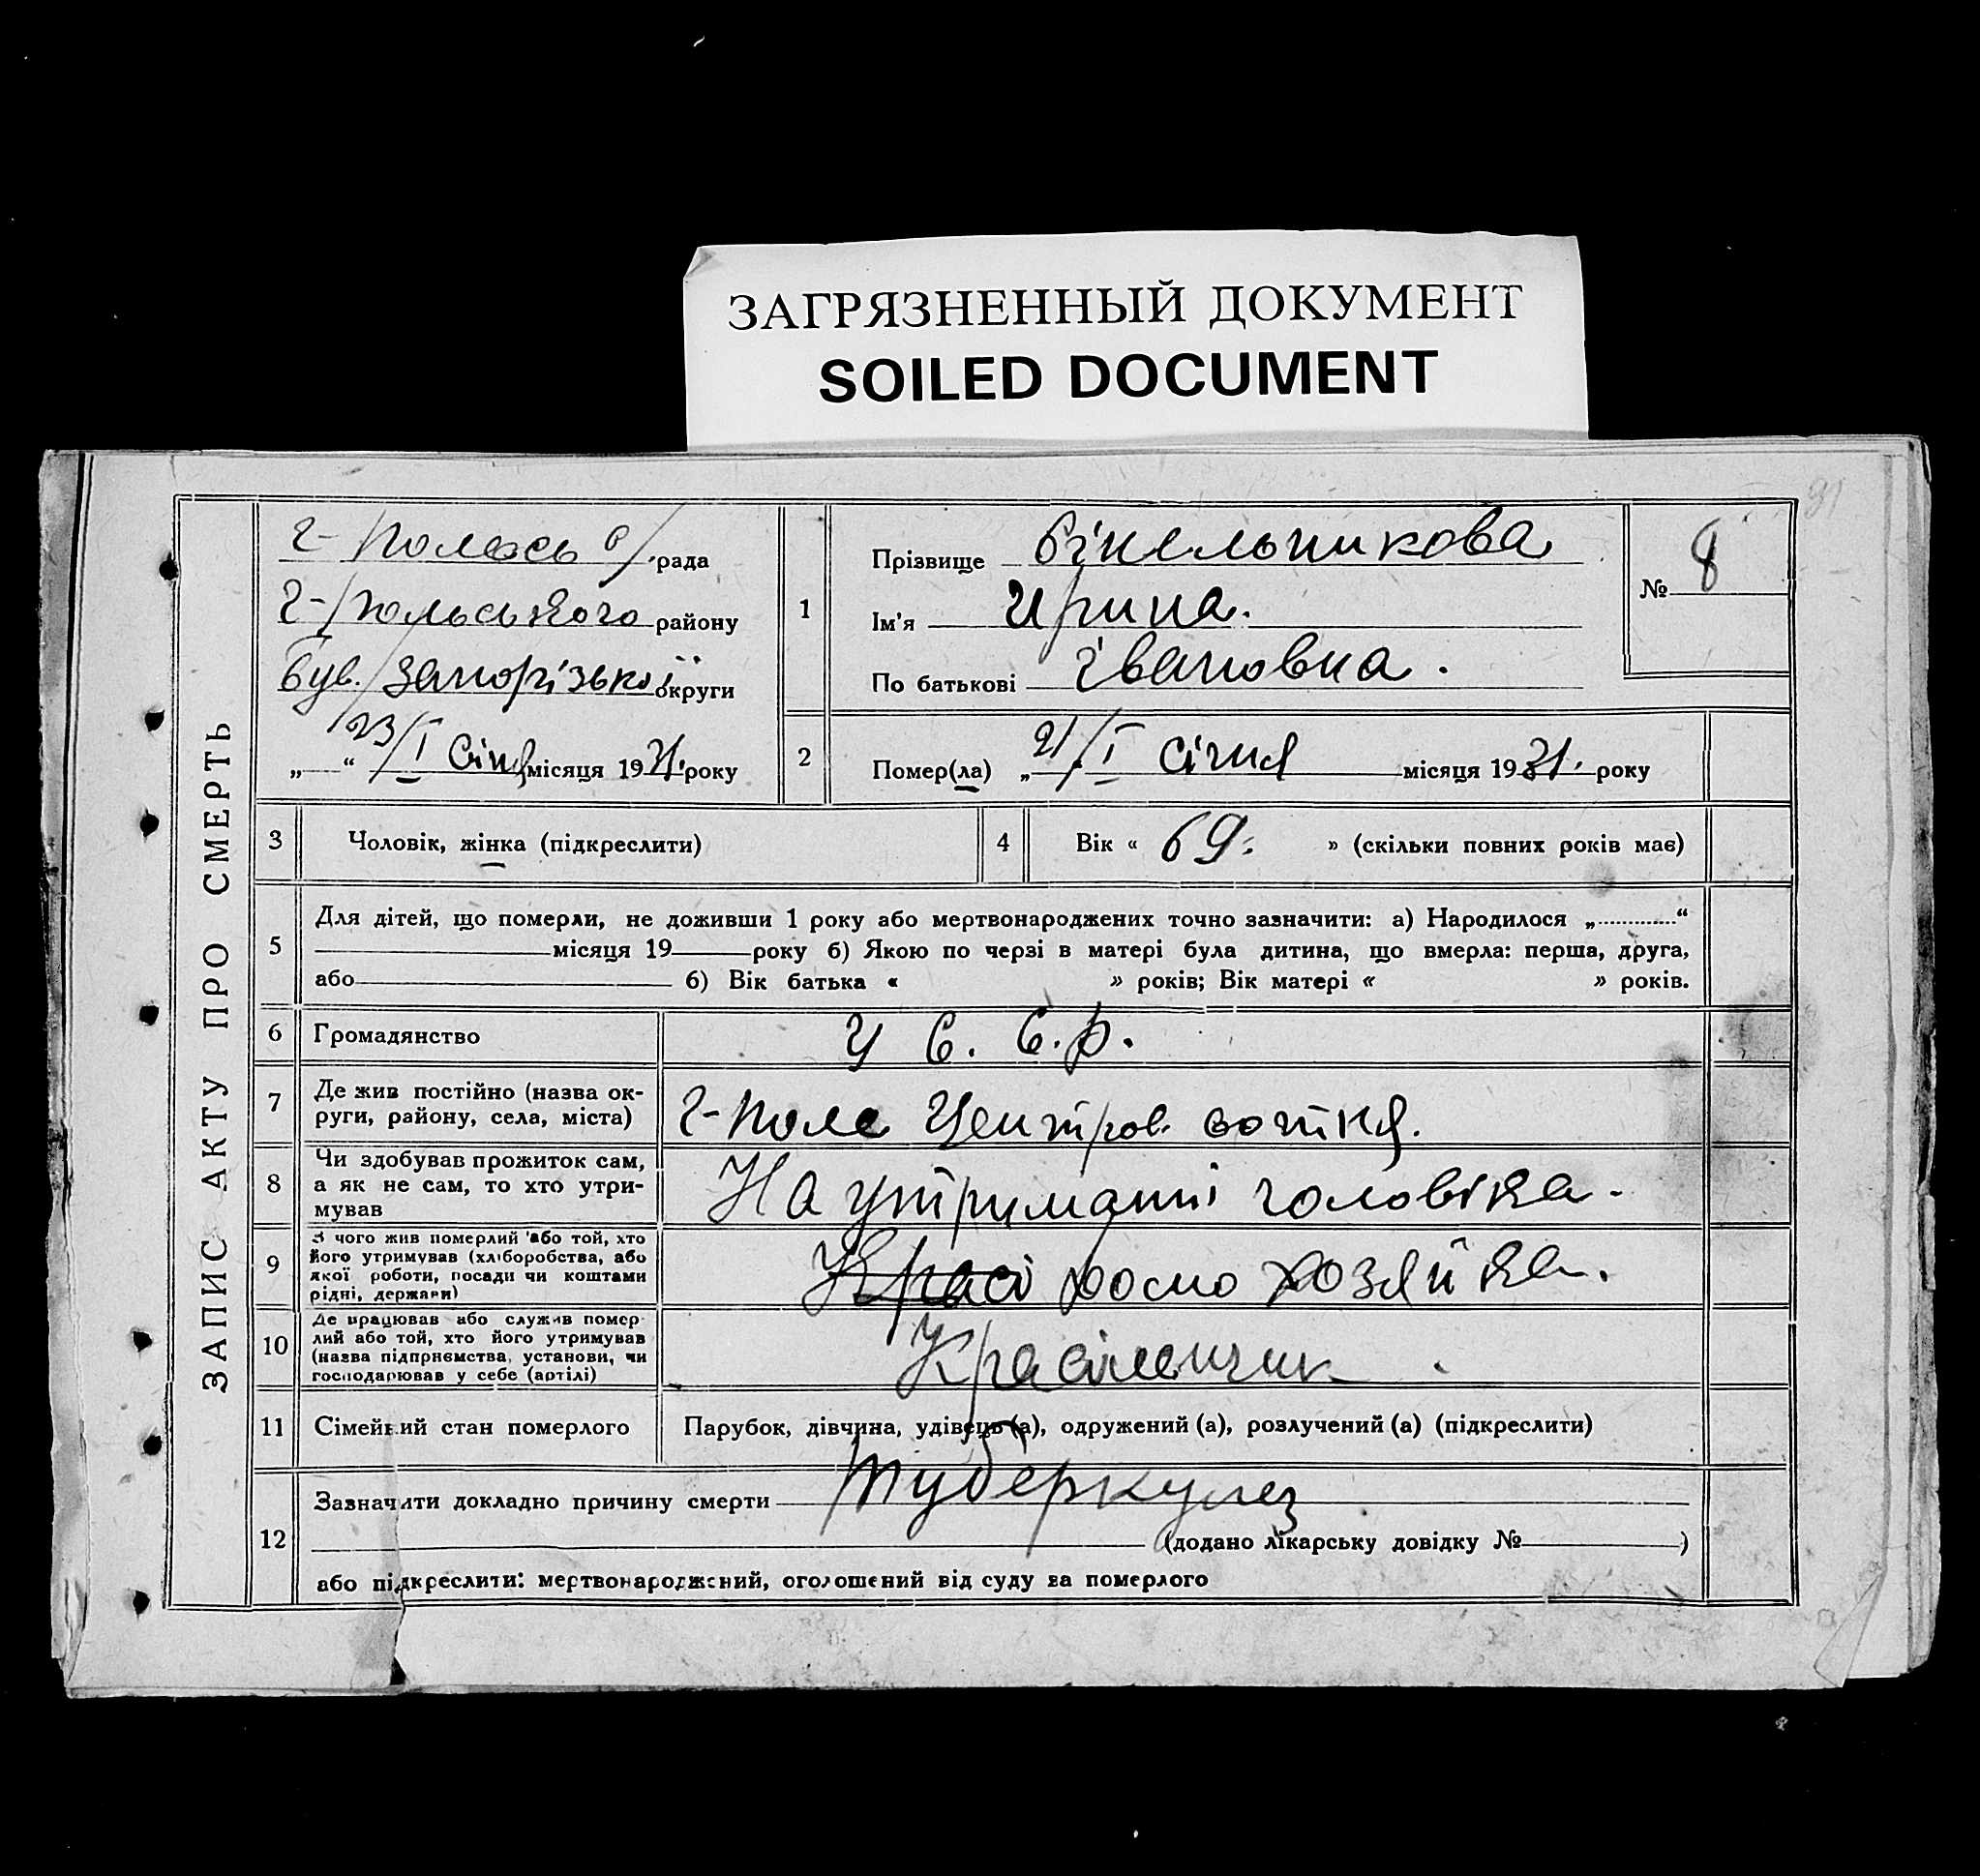 ЗАГРЯЗНЕННЫЙ ДОКУМЕНТ
SOILED DOCUMENT
ЗАПИС АКТУ ПРО СМЕРТЬ
Г- Полесь с/рада
Г-/Польського району
був./Запорізької округи
„ “ 23/I Січня місяця 1931. року
1
Прізвище Сінельникова
Ім'я Ирина.
По батькові Івановна.
№ 8
2
Помер(ла) „ 21/I Січня місяця 1931. року
3 Чоловік, жінка (підкреслити)
4 Вік « 69. » (скільки повних років має)
5
Для дітей, що померли, не доживши 1 року або мертвонароджених точно зазначити: а) Народилося „ “
місяця 19 року б) Якою по черзі в матері була дитина, що вмерла: перша, друга,
або б) Вік батька « » років; Вік матері « » років.
6 Громадянство У С. С. Р.
7 Де жив постійно (назва ок-
руги, району, села, міста) Г-Поле Центров. сотня.
8 Чи здобував прожиток сам,
а як не сам, то хто утри-
мував На утриманні чоловіка.
9 З чого жив померлий або той, хто
його утримував (хліборобства, або
якої роботи, посади чи коштами
рідні, держави) хозяйка.
10 Де працював або служив помер-
лий або той, хто його утримував
(назва підприємства, установи, чи
господарював у себе (артілі)
11 Сімейний стан померлого Парубок, дівчина, удівець (а), одружений (а), розлучений (а) (підкреслити)
12
Зазначити докладно причину смерти Туберкулез
(додано лікарську довідку № )
або підкреслити: мертвонароджений, оголошений від суду за померлого